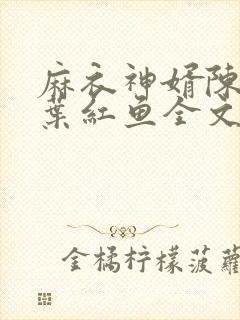 麻衣神婿陈
葉红鱼全文
金橘柠檬菠蘿